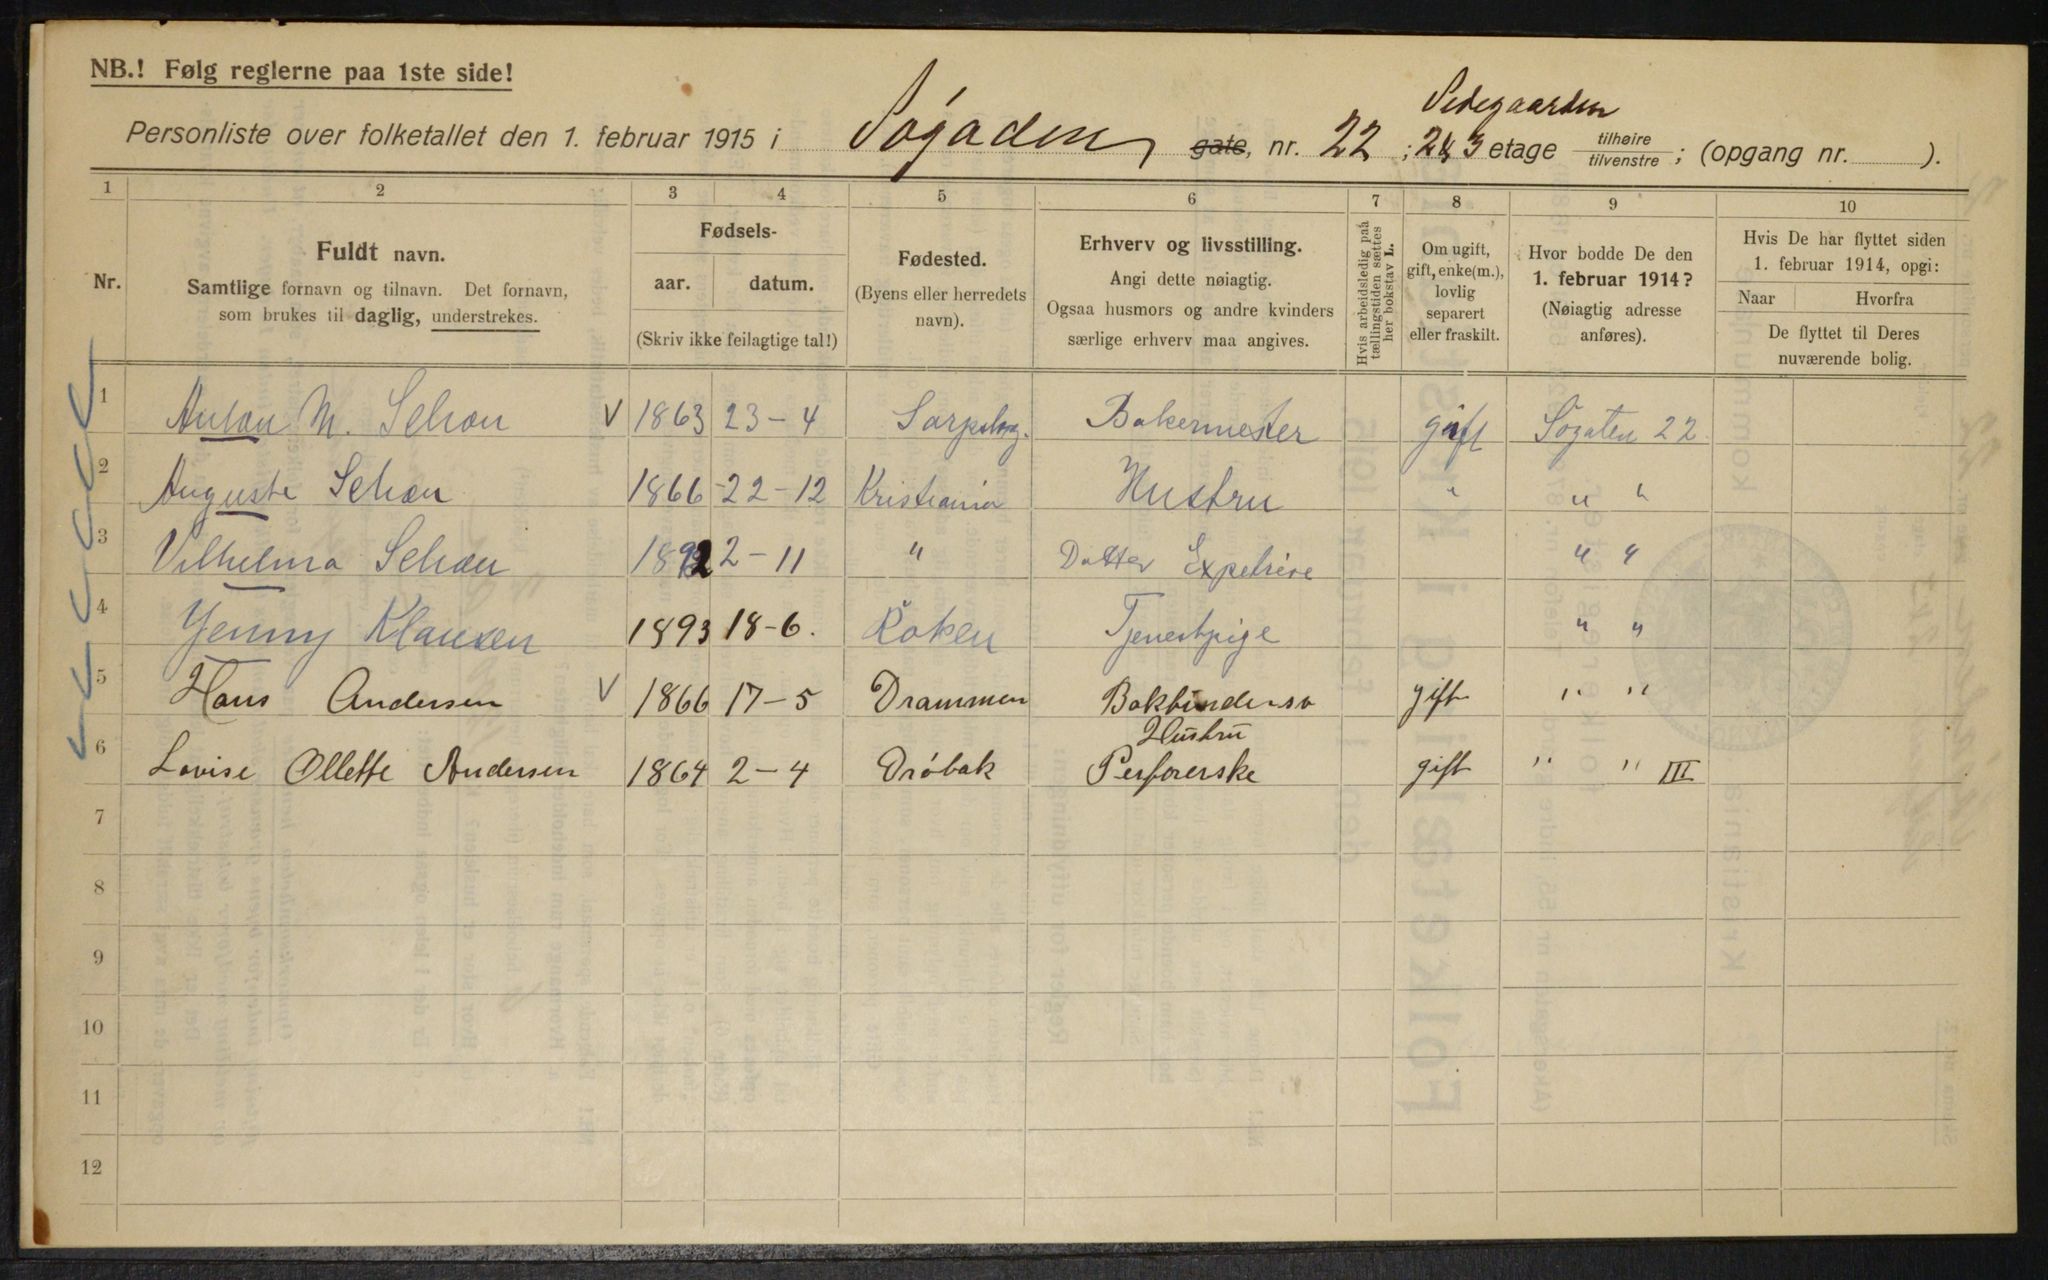 NB.! Følg reglerne paa 1ste side!
Sidegaarden
Personliste over folketallet den 1. februar 1915 i Søgaden gate, nr. 22 ; 2&3 etage tilhøire tilvenstre ; (opgang nr. ).
1 2 3 4 5 6 7 8 9 10
Nr.
Fuldt navn.
Samtlige fornavn og tilnavn. Det fornavn,
som brukes til daglig, understrekes.
Fødsels-
aar. datum.
(Skriv ikke feilagtige tal!)
Fødested.
(Byens eller herredets
navn).
Erhverv og livsstilling.
Angi dette nøiagtig.
Ogsaa husmors og andre kvinders
særlige erhverv maa angives.
Hvis arbeidsledig paa
tællingstiden sættes
her bokstav L.
Om ugift,
gift, enke(m.),
lovlig
separert
eller fraskilt.
Hvor bodde De den
1. februar 1914?
(Nøiagtig adresse
anføres).
Hvis De har flyttet siden
1. februar 1914, opgi:
Naar Hvorfra
De flyttet til Deres
nuværende bolig.
1 Anton M. Schou V 1863 23-4 Sarpsborg. Bakermester gift Søgaten 22
2 Auguste Schou 1866 22-12 Kristiania Hustru " " "
3 Vilhelma Schou 1892 2-11 " Datter " "
4 Yenny Klausen 1893 18-6. Røken Tjenestpige " "
5 Hans Andersen V 1866 17-5 Drammen Bokbindersv gift " "
Hustru
6 Lovise Ollette Andersen 1864 2-4 Drøbak Perforerske gift " " III
7
8
9
10
11
12